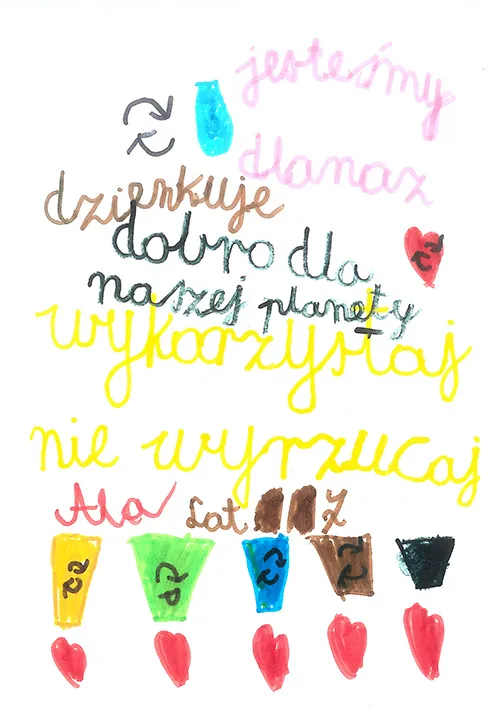 jesteśmy
dlanaz
dzienkuje
dobro dla
naszej planety
wykarzystaj
nie wyrzucaj
Ala Lat 7